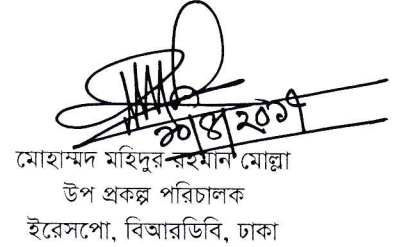 ২০/৪/২০১৭
মোহাম্মদ মহিদুর রহমান মোল্লা
উপ প্রকল্প পরিচালক
ইরেসপো, বিআরডিবি, ঢাকা